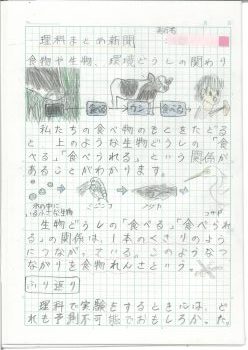 あおぞら
理科まとめの新聞
食物や生物、環境どうしの関わり
食べる
ウシ
食べる
私たちの食べ物のもとをたどる
と、上のような生物どうしの「食
べる」「食べられる」という関係が
あることがわかります。
水の中に
いる小さな生物
ミジンコ
メダカ
コサギ
生物どうしの「食べる」「食べられ
る」の関係は、1本のくさりのよう
につながっている。このようなつ
ながりを食物れんさという。
ふり返り
理科で実験をするときには、ど
れも予測不可能でおもしろかった